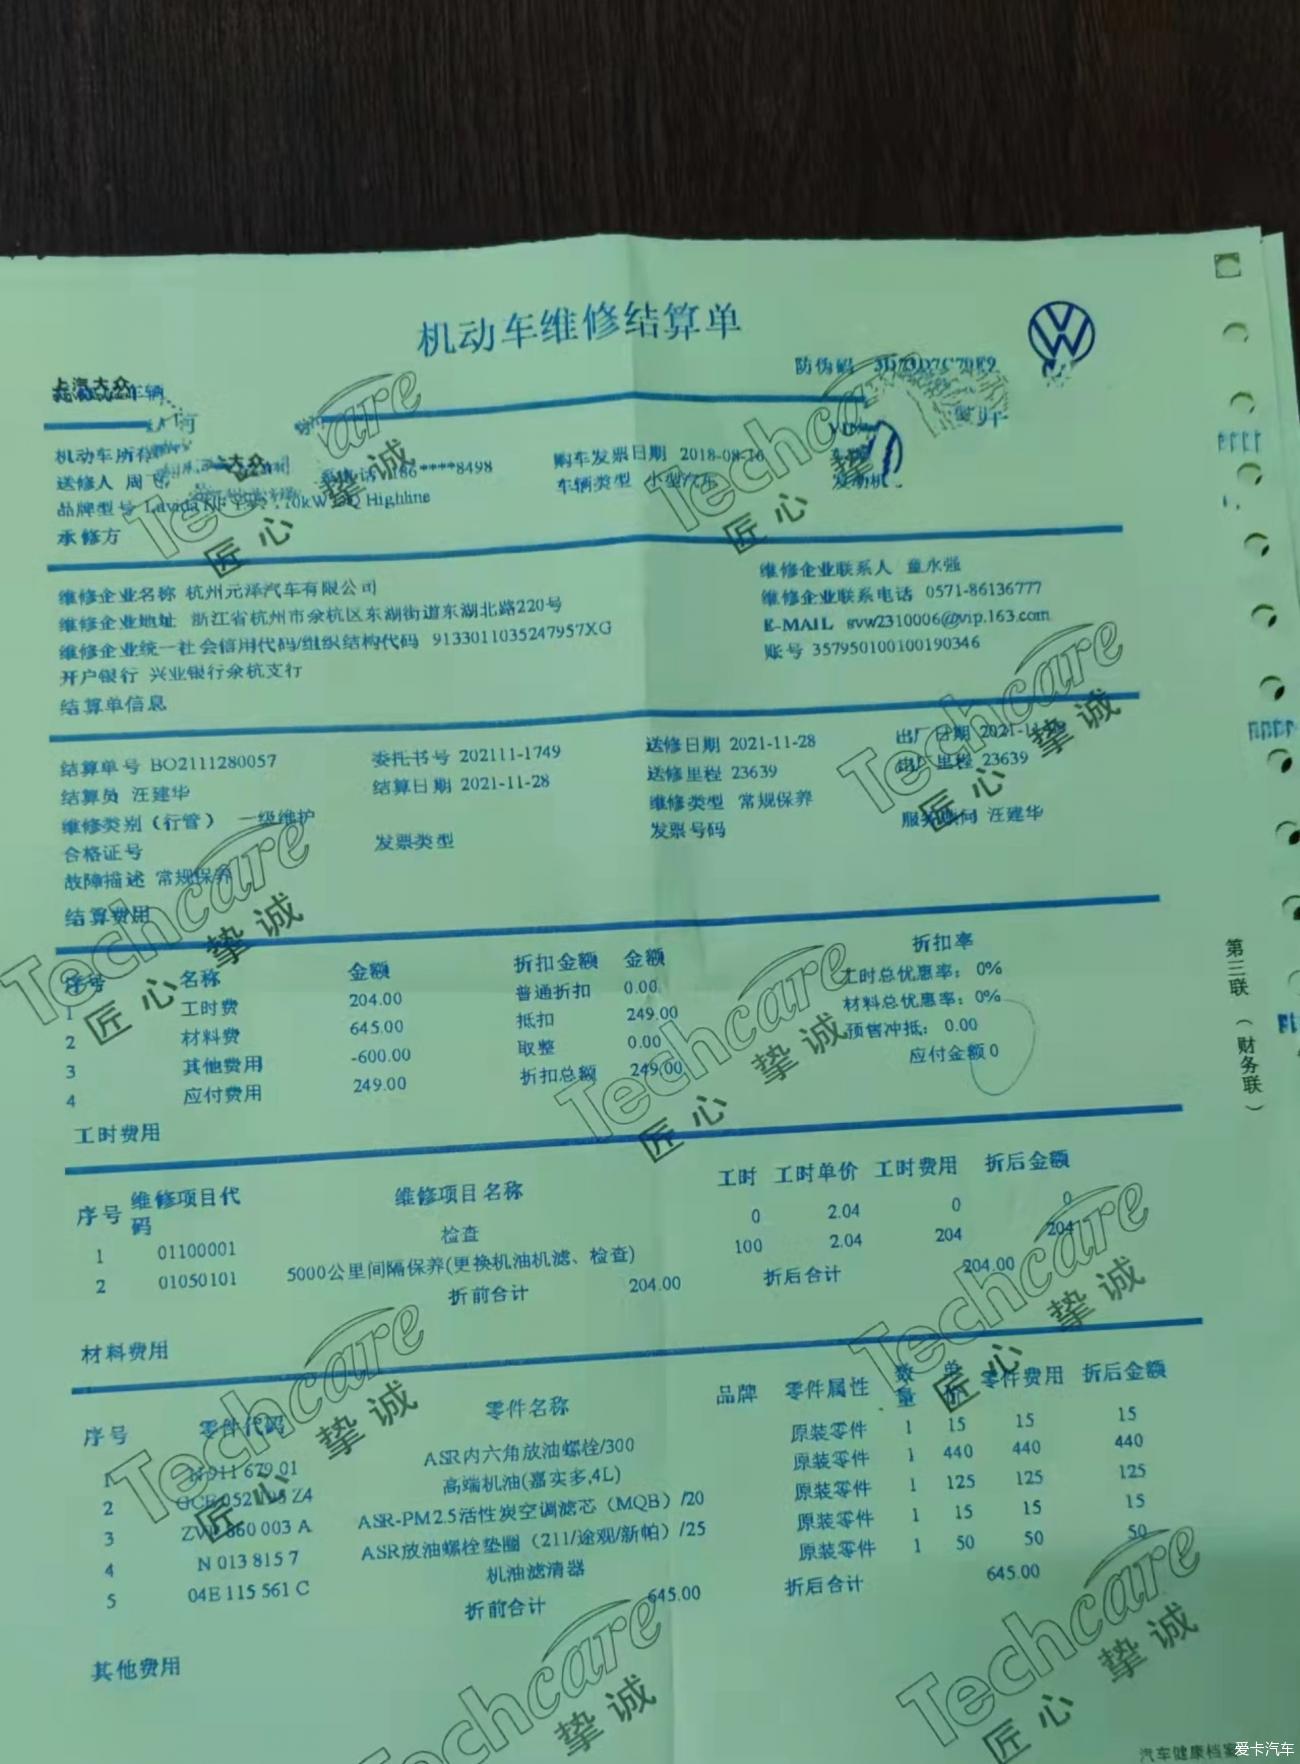 机动车维修结算单
防伪码
上汽大众
车辆
机动车所有
送修人 周
186****8498
购车发票日期 2018-08-16
品牌型号 Highline
车辆类型 小型汽车
发动机
承修方
维修企业名称 杭州元泽汽车有限公司
维修企业联系人 童永强
维修企业地址 浙江省杭州市余杭区东湖街道东湖北路220号
维修企业联系电话 0571-86136777
维修企业统一社会信用代码/组织结构代码 9133011035247957XG
E-MAIL svw2310006@vip.163.com
开户银行 兴业银行余杭支行
账号 357950100100190346
结算单信息
结算单号 BO2111280057 委托书号 202111-1749 送修日期 2021-11-28 出厂日期
结算员 汪建华 结算日期 2021-11-28 送修里程 23639 出厂里程 23639
维修类别（行管） 一级维护 维修类型 常规保养
合格证号 发票类型 发票号码 服务顾问 汪建华
故障描述 常规保养
结算费用
序号 名称 金额 折扣金额 金额 折扣率
1 工时费 204.00 普通折扣 0.00 工时总优惠率：0%
2 材料费 645.00 抵扣 249.00 材料总优惠率：0%
3 其他费用 -600.00 取整 0.00 预售冲抵：0.00
4 应付费用 249.00 折扣总额 249.00 应付金额 0
工时费用
序号 维修项目代码 维修项目名称 工时 工时单价 工时费用 折后金额
1 01100001 检查 0 2.04 0 0
2 01050101 5000公里间隔保养(更换机油机滤、检查) 100 2.04 204 204
折前合计 204.00 折后合计 204.00
材料费用
序号 零件代码 零件名称 品牌 零件属性 数量 单价 零件费用 折后金额
1 N 911 679 01 ASR内六角放油螺栓/300 原装零件 1 15 15 15
2 Z4 高端机油(嘉实多,4L) 原装零件 1 440 440 440
3 860 003 A ASR-PM2.5活性炭空调滤芯（MQB）/20 原装零件 1 125 125 125
4 N 013 815 7 ASR放油螺栓垫圈（211/途观/新帕）/25 原装零件 1 15 15 15
5 04E 115 561 C 机油滤清器 原装零件 1 50 50 50
折前合计 645.00 折后合计 645.00
其他费用
第三联（财务联）
Techcare
匠心 挚诚
Techcare
匠心 挚诚
Techcare
匠心 挚诚
Techcare
匠心 挚诚
Techcare
匠心 挚诚
Techcare
匠心 挚诚
Techcare
匠心 挚诚
Techcare
挚诚
Techcare
匠心 挚诚
汽车健康档案
爱卡汽车